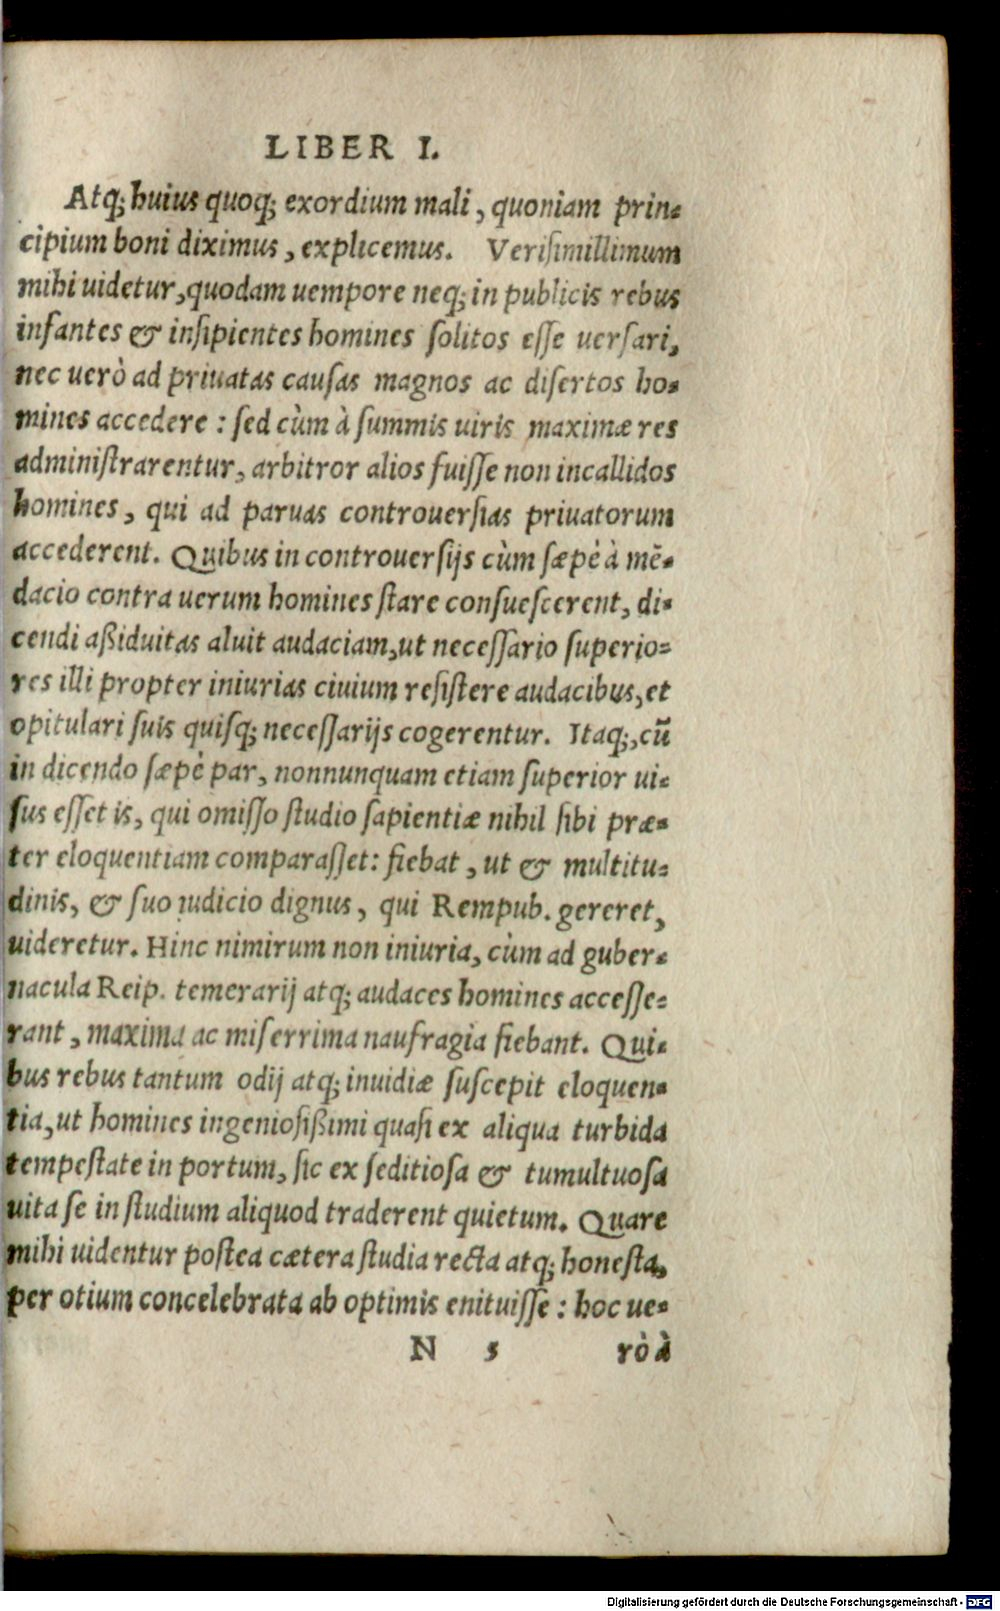 LIBER I.
Atq; huius quoq; exordium mali, quoniam prin-
cipium boni diximus, explicemus. Verisimillimum
mihi uidetur, quodam uempore neq; in publicis rebus
infantes & insipientes homines solitos esse uersari,
nec uerò ad priuatas causas magnos ac disertos ho-
mines accedere: sed cùm à summis uiris maximæ res
administrarentur, arbitror alios fuisse non incallidos
homines, qui ad paruas controuersias priuatorum
accederent. Quibus in controuersijs cùm sæpè à mē-
dacio contra uerum homines stare consuescerent, di-
cendi aßiduitas aluit audaciam, ut necessario superio-
res illi propter iniurias ciuium resistere audacibus, et
opitulari suis quisq; necessarijs cogerentur. Itaq;, cū
in dicendo sæpè par, nonnunquam etiam superior ui-
sus esset is, qui omisso studio sapientiæ nihil sibi præ-
ter eloquentiam comparasset: fiebat, ut & multitu-
dinis, & suo iudicio dignus, qui Rempub. gereret,
uideretur. Hinc nimirum non iniuria, cùm ad guber-
nacula Reip. temerarij atq; audaces homines accesse-
rant, maxima ac miserrima naufragia fiebant. Qui-
bus rebus tantum odij atq; inuidiæ suscepit eloquen-
tia, ut homines ingeniosißimi quasi ex aliqua turbida
tempestate in portum, sic ex seditiosa & tumultuosa
uita se in studium aliquod traderent quietum. Quare
mihi uidentur postea cætera studia recta atq; honesta,
per otium concelebrata ab optimis enituisse: hoc ue-
N 5 rò à
Digitalisierung gefördert durch die Deutsche Forschungsgemeinschaft - DFG